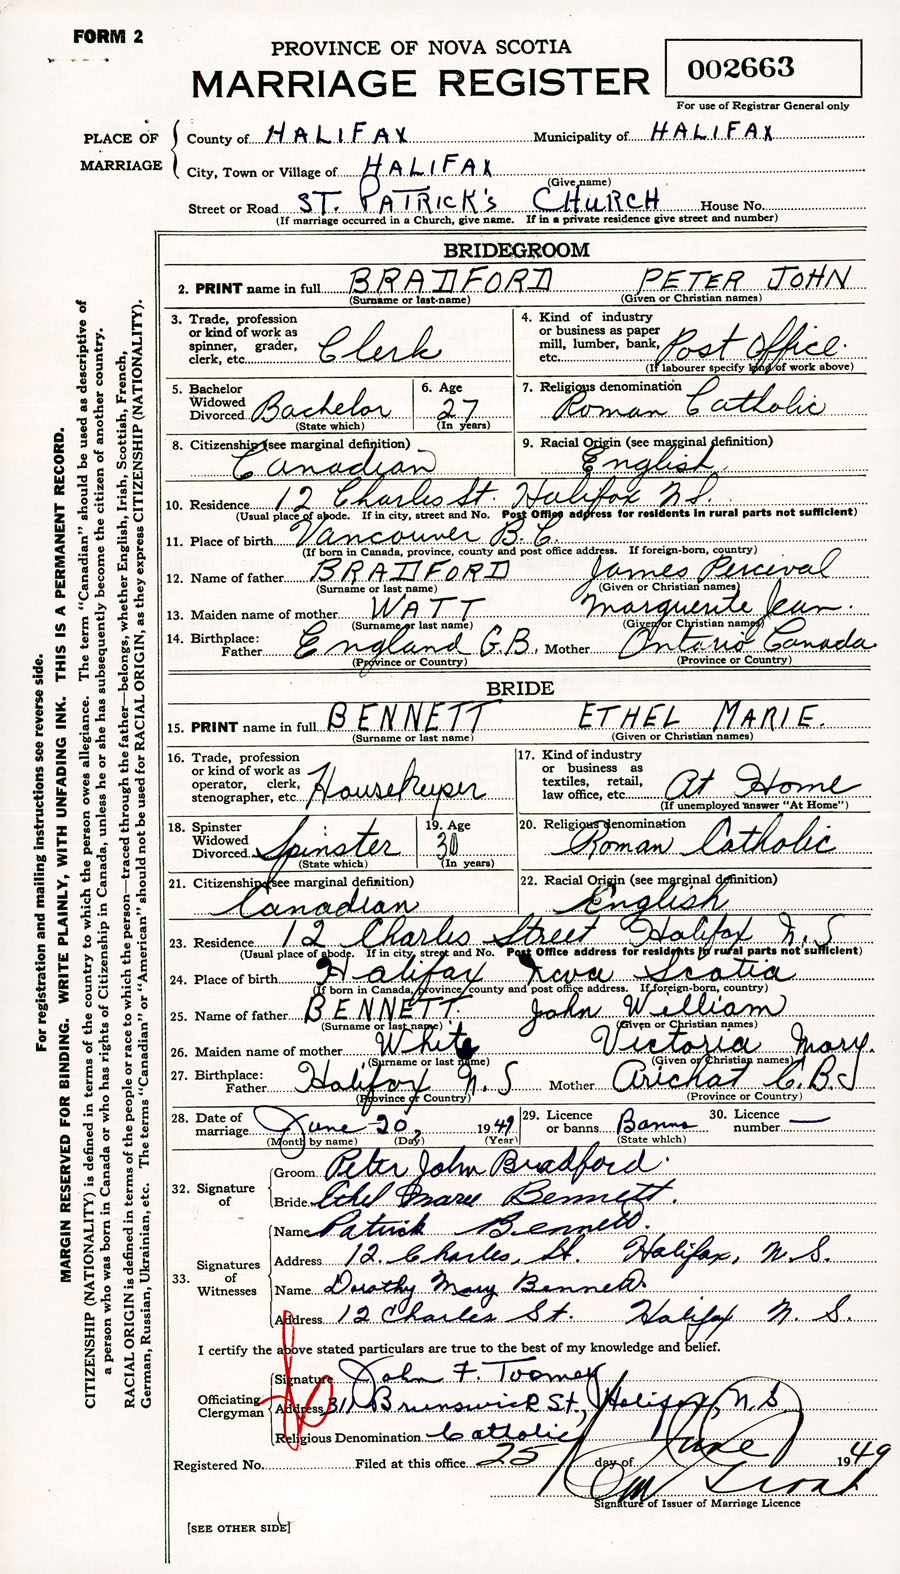 FORM 2
PROVINCE OF NOVA SCOTIA
MARRIAGE REGISTER
002663
For use of Registrar General only
PLACE OF MARRIAGE
County of HALIFAX Municipality of HALIFAX
City, Town or Village of HALIFAX
(Give name)
Street or Road ST. PATRICK'S CHURCH House No.
(If marriage occurred in a Church, give name. If in a private residence give street and number)
BRIDEGROOM
2. PRINT name in full BRADFORD PETER JOHN
(Surname or last name) (Given or Christian names)
3. Trade, profession or kind of work as spinner, grader, clerk, etc. Clerk
4. Kind of industry or business as paper mill, lumber, bank, etc. Post Office.
(If labourer specify kind of work above)
5. Bachelor Widowed Divorced Bachelor
(State which)
6. Age 27
(In years)
7. Religious denomination Roman Catholic
8. Citizenship (see marginal definition) Canadian
9. Racial Origin (see marginal definition) English
10. Residence 12 Charles St. Halifax N.S.
(Usual place of abode. If in city, street and No. Post Office address for residents in rural parts not sufficient)
11. Place of birth Vancouver B.C.
(If born in Canada, province, county and post office address. If foreign-born, country)
12. Name of father BRADFORD James Perceval
(Surname or last name) (Given or Christian names)
13. Maiden name of mother WATT Marguerite Jean.
(Surname or last name) (Given or Christian names)
14. Birthplace: Father England G.B. Mother Ontario Canada.
(Province or Country) (Province or Country)
BRIDE
15. PRINT name in full BENNETT ETHEL MARIE.
(Surname or last name) (Given or Christian names)
16. Trade, profession or kind of work as operator, clerk, stenographer, etc. Housekeeper
17. Kind of industry or business as textiles, retail, law office, etc. At Home
(If unemployed answer "At Home")
18. Spinster Widowed Divorced Spinster
(State which)
19. Age 30
(In years)
20. Religious denomination Roman Catholic
21. Citizenship (see marginal definition) Canadian
22. Racial Origin (see marginal definition) English
23. Residence 12 Charles Street Halifax N.S
(Usual place of abode. If in city, street and No. Post Office address for residents in rural parts not sufficient)
24. Place of birth Halifax Nova Scotia
(If born in Canada, province, county and post office address. If foreign-born, country)
25. Name of father BENNETT. John William
(Surname or last name) (Given or Christian names)
26. Maiden name of mother White Victoria Mary.
(Surname or last name) (Given or Christian names)
27. Birthplace: Father Halifax N.S Mother Arichat C.B.
(Province or Country) (Province or Country)
28. Date of marriage June 20, 1949
(Month by name) (Day) (Year)
29. Licence or banns Banns
(State which)
30. Licence number —
32. Signature of
Groom Peter John Bradford.
Bride Ethel Marie Bennett.
33. Signatures of Witnesses
Name Patrick Bennett.
Address 12. Charles, St. Halifax, N.S.
Name Dorothy Mary Bennett.
Address 12 Charles St. Halifax N.S.
I certify the above stated particulars are true to the best of my knowledge and belief.
Officiating Clergyman
Signature John F. Toomey
Address 311 Brunswick St., Halifax, N.S
Religious Denomination Catholic
Registered No. Filed at this office 25 day of June 1949
Signature of Issuer of Marriage Licence
[SEE OTHER SIDE]
For registration and mailing instructions see reverse side.
MARGIN RESERVED FOR BINDING. WRITE PLAINLY, WITH UNFADING INK. THIS IS A PERMANENT RECORD.
CITIZENSHIP (NATIONALITY) is defined in terms of the country to which the person owes allegiance. The term "Canadian" should be used as descriptive of
a person who was born in Canada or who has rights of Citizenship in Canada, unless he or she has subsequently become the citizen of another country.
RACIAL ORIGIN is defined in terms of the people or race to which the person—traced through the father—belongs, whether English, Irish, Scottish, French,
German, Russian, Ukrainian, etc. The terms "Canadian" or "American" should not be used for RACIAL ORIGIN, as they express CITIZENSHIP (NATIONALITY).